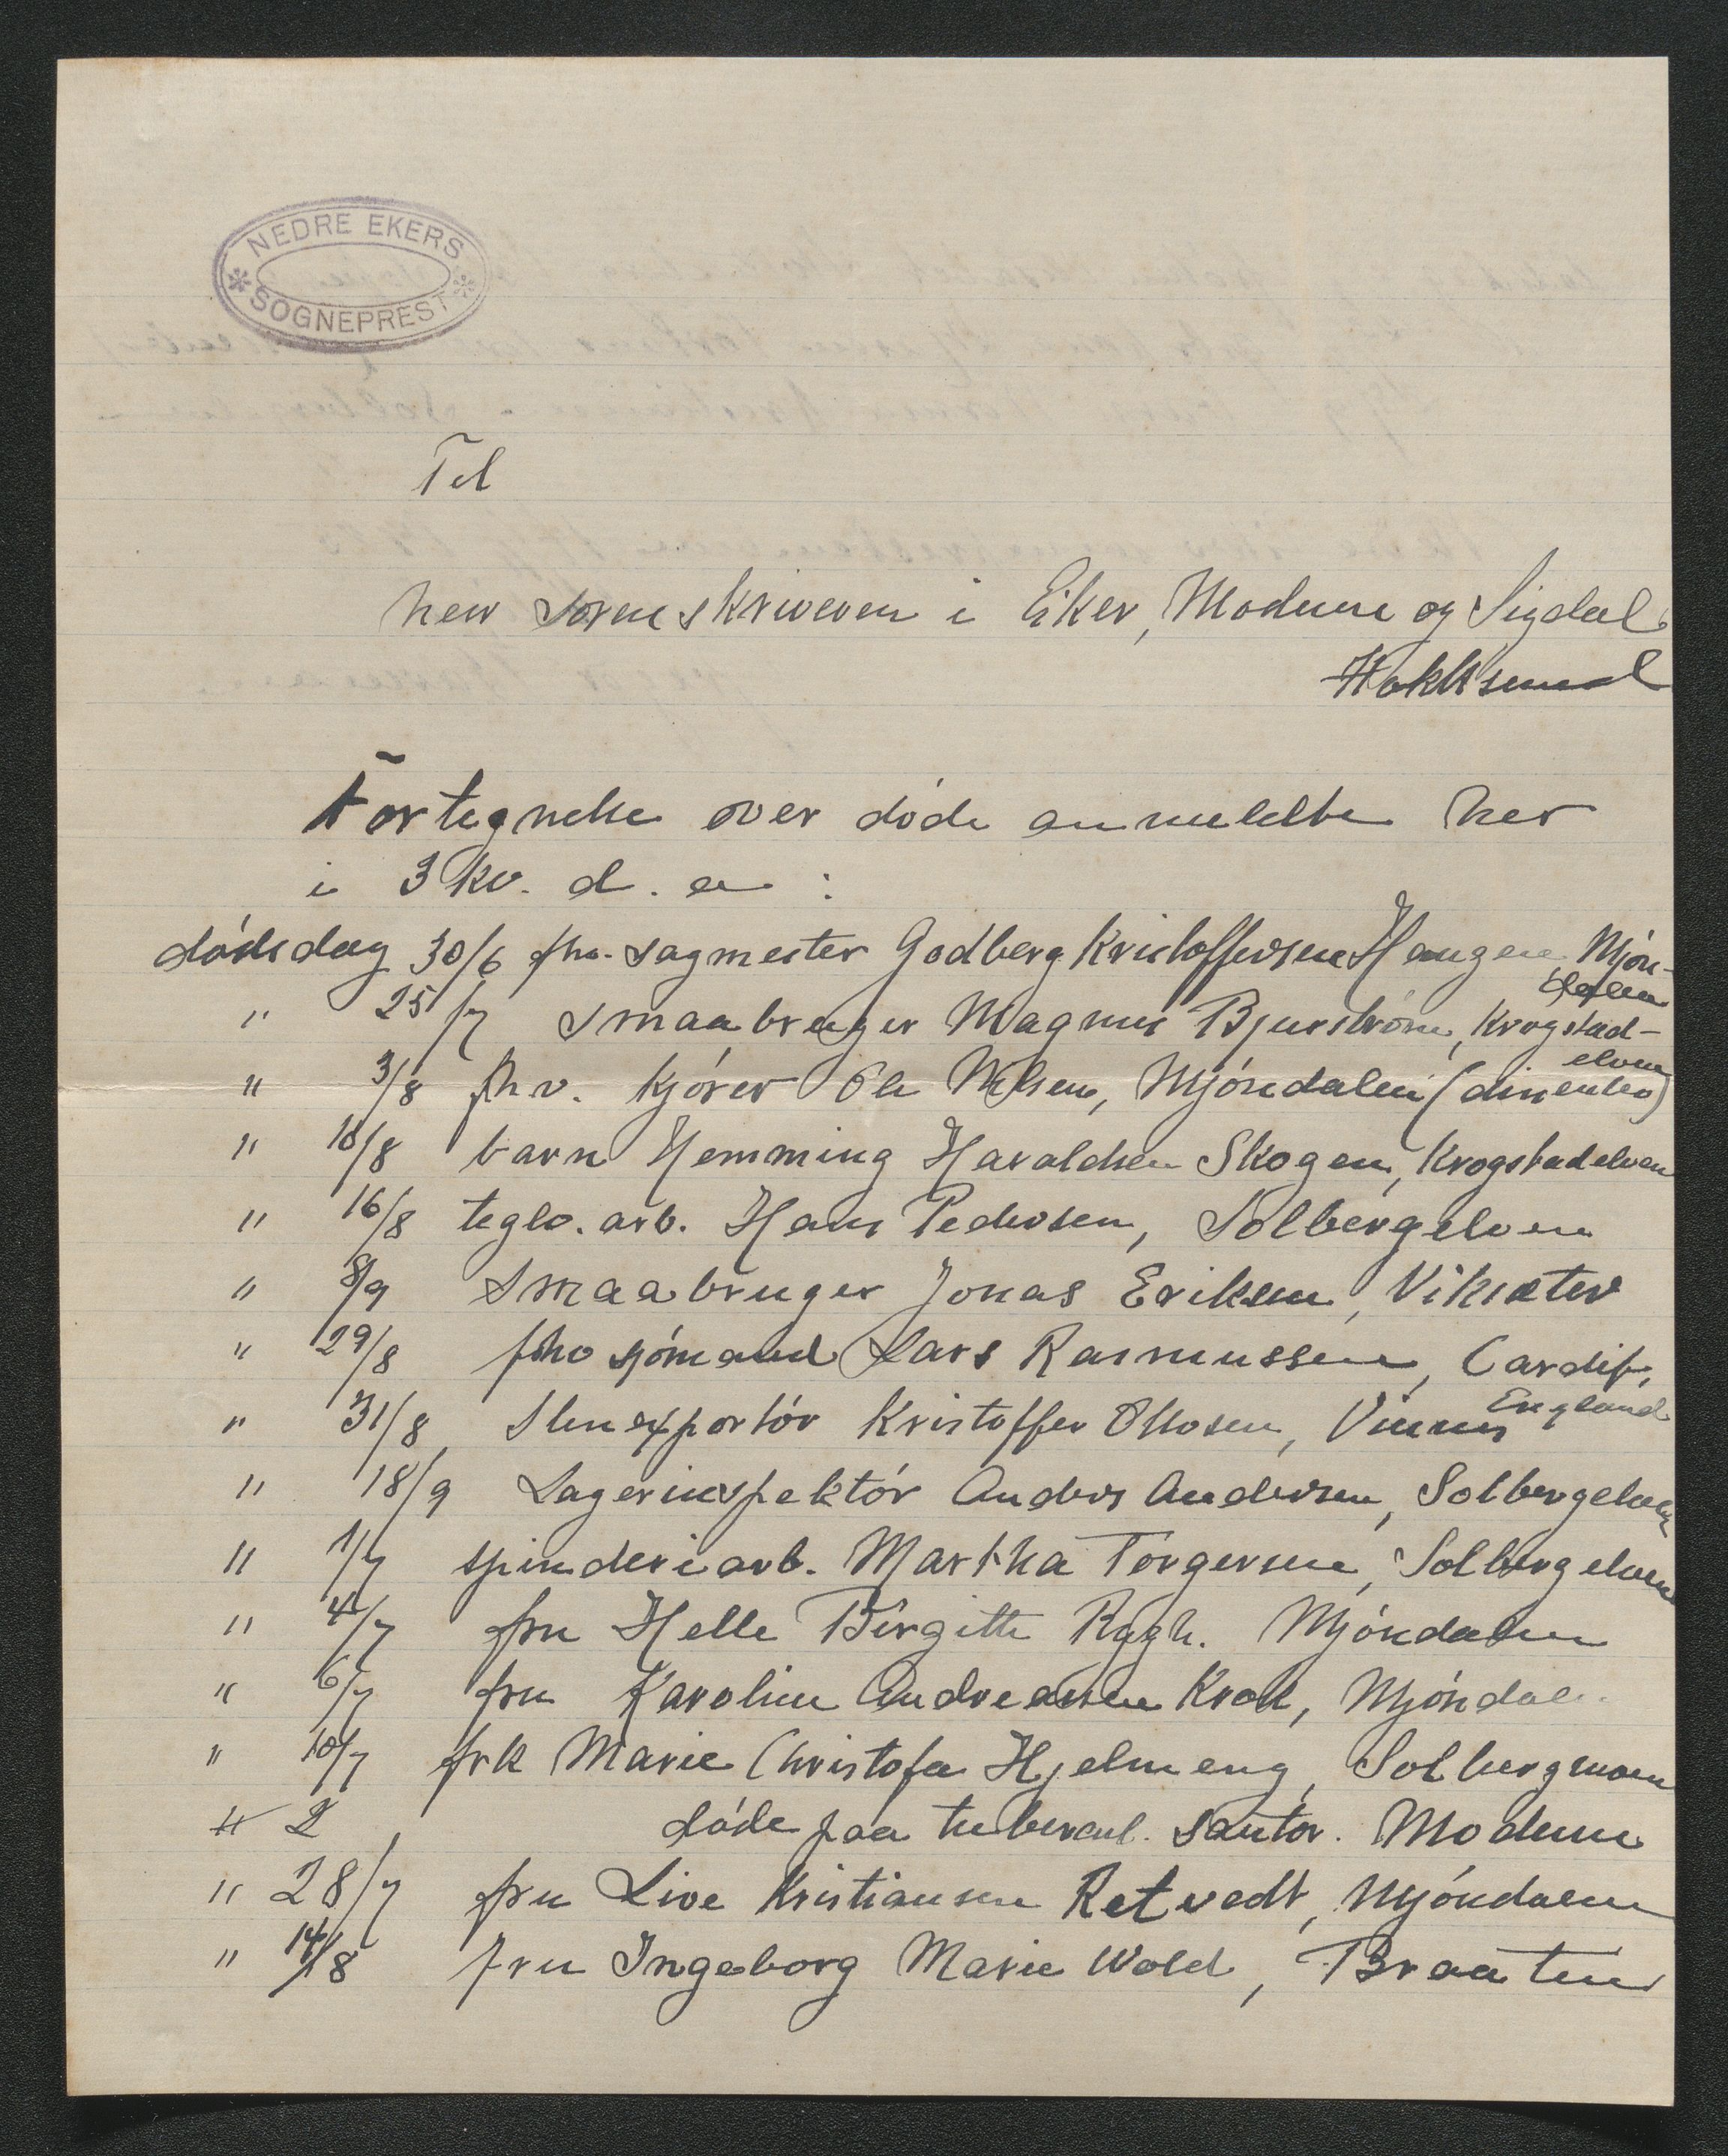 NEDRE EKERS
SOGNEPREST
Til
herr sorenskriveren i Eiker, Modum og Sigdal
Hokksund
Fortegnelse over døde anmeldte her
i 3 kv. d. a :
dødsdag 30/6 fhv. sagmester Godberg Kristoffersen Haugen Mjøn-
dalen
" 25/7 smaabruger Magnus Bjurstrøm, Krogstad-
elven
" 3/8 fhv. kjører Ole Nilsen, Mjøndalen (dissenter)
" 10/8 barn Hemming Haraldsen Skogen, Krogstadelven
" 16/8 teglv. arb. Hans Pedersen, Solbergelven
" 8/9 smaabruger Jonas Eriksen, Viksæter
" 29/8 fhv sjømand Lars Rasmussen, Cardif,
England
" 31/8, Stenexportør Kristoffer Ottosen, Vinnes
" 18/9 Lagerinspektør Anders Andersen, Solbergelven
" 1/7 spinderiarb. Martha Torgersen, Solbergelven
" 4/7 fru Helle Birgitte Rygh. Mjøndalen
" 6/7 fru Karoline Andreasen Krok, Mjøndal.
" 10/7 frk Marie Christofa Hjelmeng, Solbergmoen
" 2 døde paa tubercul. santor. Modum
" 28/7 fru Live Kristiansen Retvedt, Mjøndalen
" 14/8 fru Ingeborg Marie Wold, Braaten